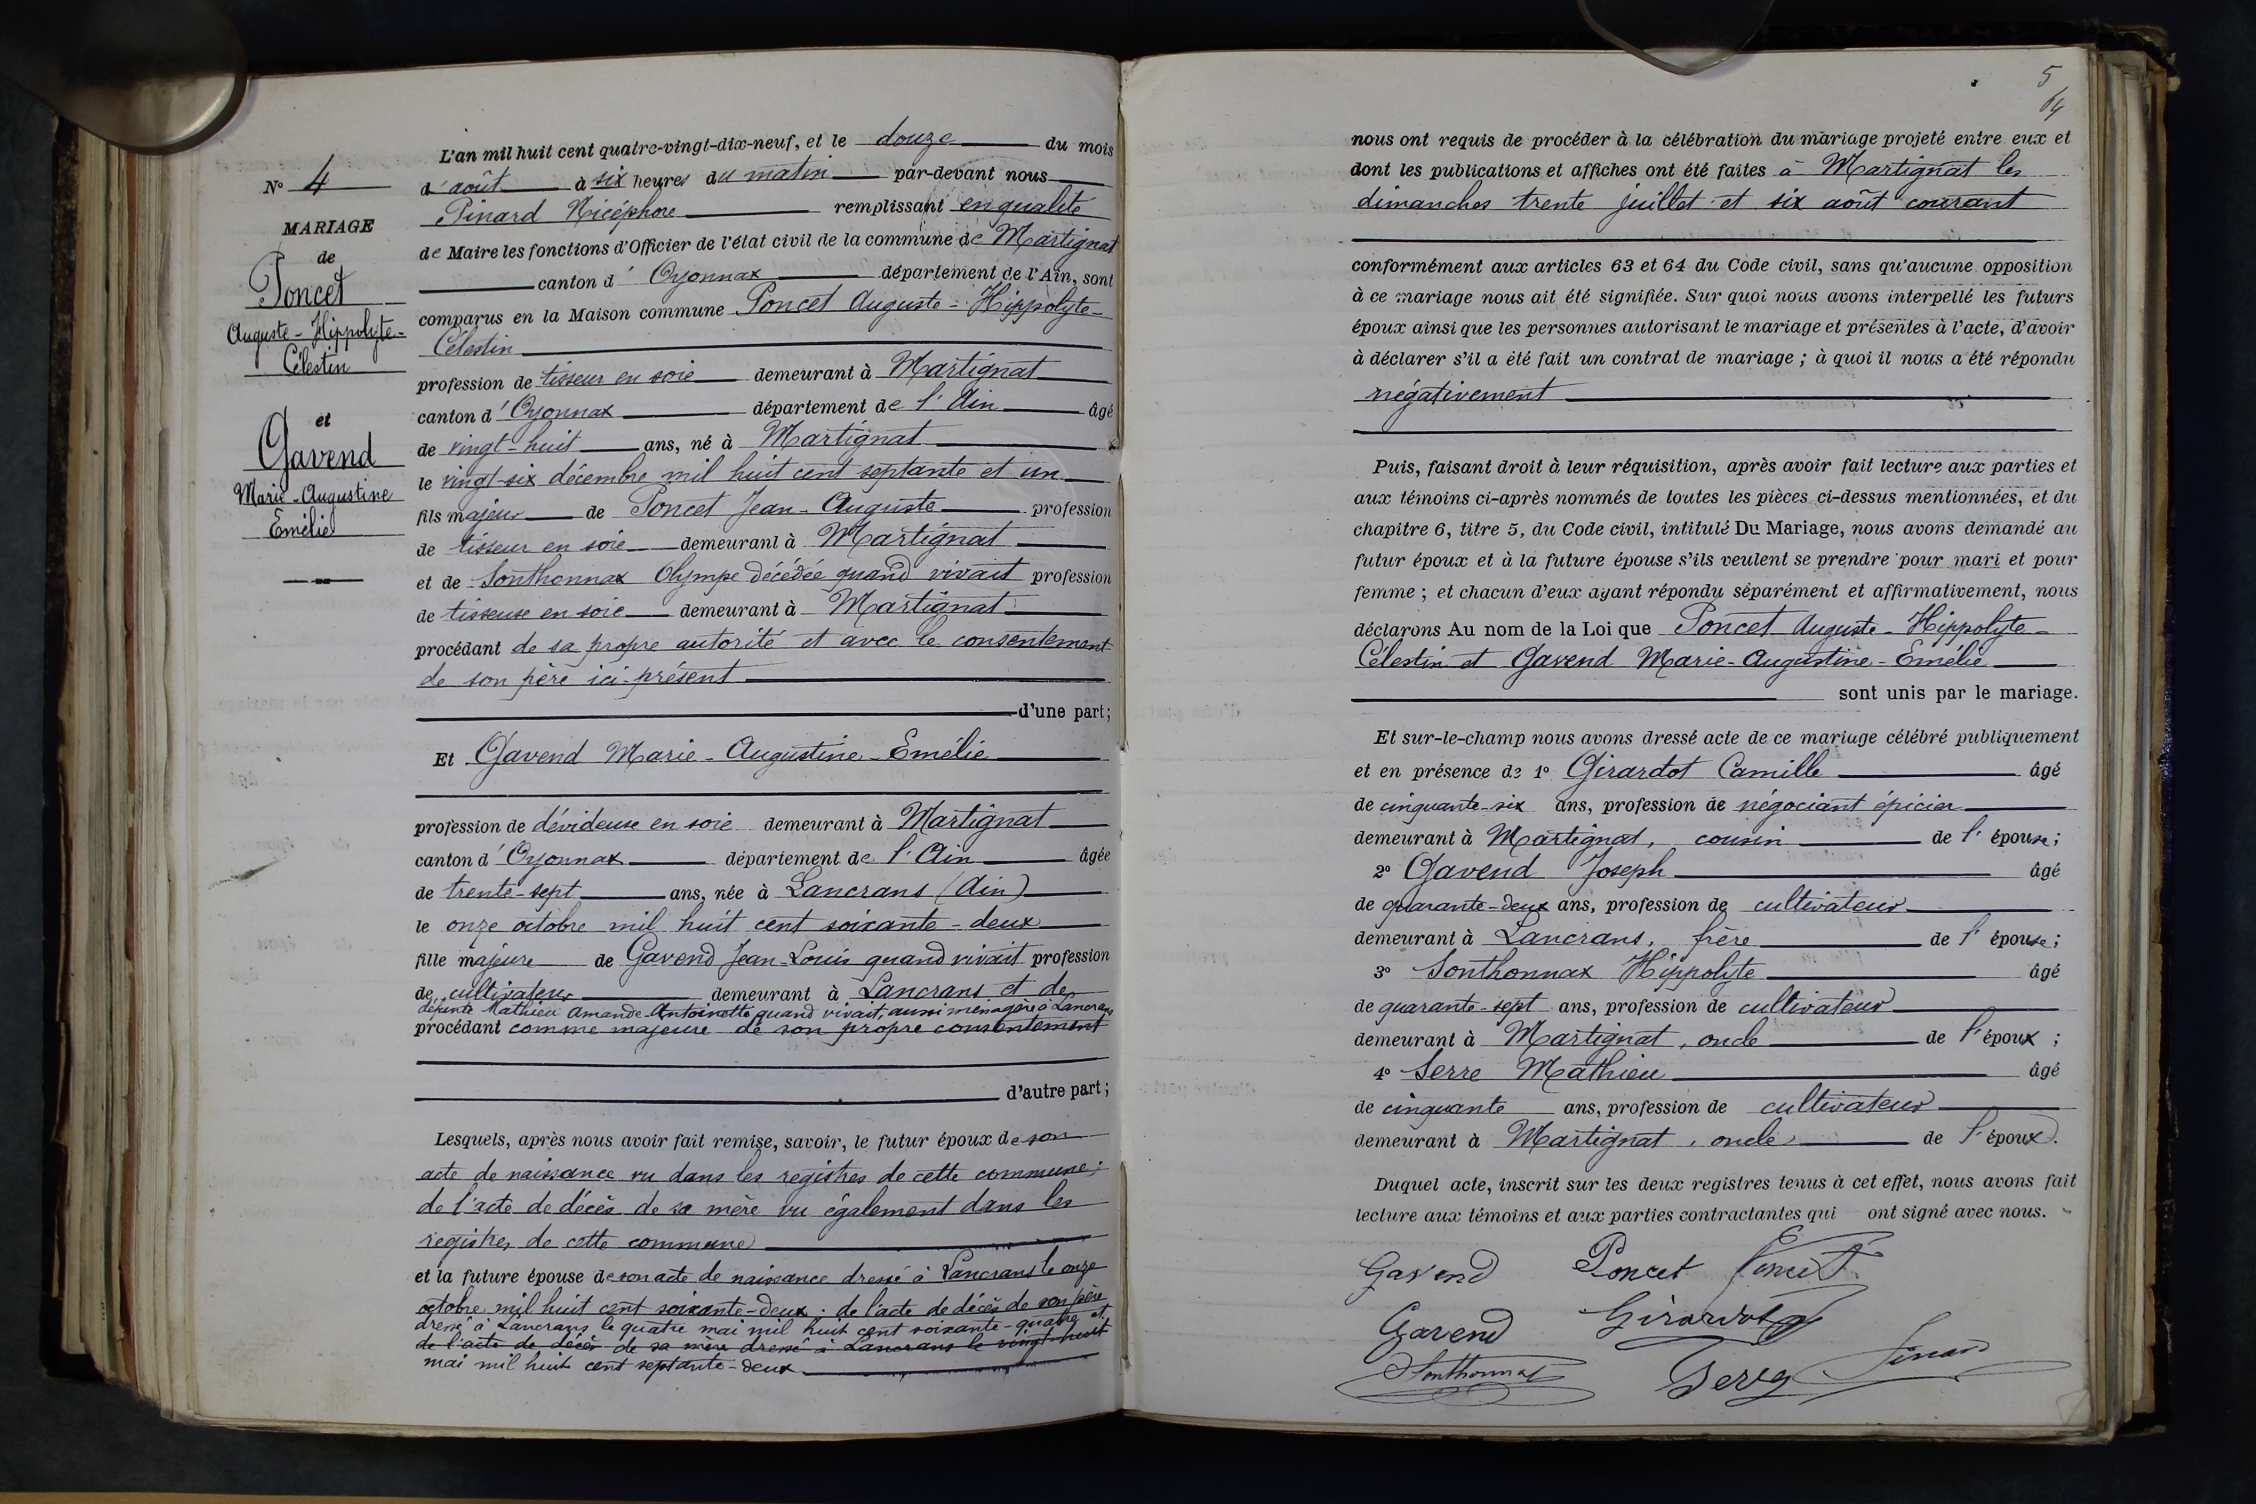 N° 4
MARIAGE
de
Poncet
Auguste-Hippolyte-
Célestin
et
Gavend
Marie-Augustine
Emélie
L'an mil huit cent quatre-vingt-dix-neuf, et le douze du mois
d'août à six heures du matin par-devant nous
Pinard Nicéphore remplissant en qualité
de Maire les fonctions d'Officier de l'état civil de la commune de Martignat
canton d'Oyonnax département de l'Ain, sont
comparus en la Maison commune Poncet Auguste-Hippolyte-
Célestin
profession de tisseur en soie demeurant à Martignat
canton d'Oyonnax département de l'Ain âgé
de vingt-huit ans, né à Martignat
le vingt-six décembre mil huit cent septante et un
fils majeur de Poncet Jean-Auguste profession
de tisseur en soie demeurant à Martignat
et de Sonthonnax Olympe décédée quand vivait profession
de tisseuse en soie demeurant à Martignat
procédant de sa propre autorité et avec le consentement
de son père ici-présent
d'une part;
Et Gavend Marie-Augustine-Emélie
profession de dévideuse en soie demeurant à Martignat
canton d'Oyonnax département de l'Ain âgée
de trente-sept ans, née à Lancrans (Ain)
le onze octobre mil huit cent soixante-deux
fille majeure de Gavend Jean-Louis quand vivait profession
de cultivateur demeurant à Lancrans et de
défunte Mathieu Amande Antoinette quand vivait, aussi ménagère à Lancrans
procédant comme majeure de son propre consentement
d'autre part;
Lesquels, après nous avoir fait remise, savoir, le futur époux de son
acte de naissance vu dans les registres de cette commune;
de l'acte de décès de sa mère vu également dans les
registres de cette commune
et la future épouse de son acte de naissance dressé à Lancrans le onze
octobre mil huit cent soixante-deux; de l'acte de décès de son père
dressé à Lancrans le quatre mai mil huit cent soixante-quatre et
de l'acte de décès de sa mère dressé à Lancrans le vingt-huit
mai mil huit cent septante-deux
5
64
nous ont requis de procéder à la célébration du mariage projeté entre eux et
dont les publications et affiches ont été faites à Martignat les
dimanches trente juillet et six août courant
conformément aux articles 63 et 64 du Code civil, sans qu'aucune opposition
à ce mariage nous ait été signifiée. Sur quoi nous avons interpellé les futurs
époux ainsi que les personnes autorisant le mariage et présentes à l'acte, d'avoir
à déclarer s'il a été fait un contrat de mariage; à quoi il nous a été répondu
négativement
Puis, faisant droit à leur réquisition, après avoir fait lecture aux parties et
aux témoins ci-après nommés de toutes les pièces ci-dessus mentionnées, et du
chapitre 6, titre 5, du Code civil, intitulé Du Mariage, nous avons demandé au
futur époux et à la future épouse s'ils veulent se prendre pour mari et pour
femme; et chacun d'eux ayant répondu séparément et affirmativement, nous
déclarons Au nom de la Loi que Poncet Auguste-Hippolyte-
Célestin et Gavend Marie-Augustine-Emélie
sont unis par le mariage.
Et sur-le-champ nous avons dressé acte de ce mariage célébré publiquement
et en présence de 1° Girardot Camille âgé
de cinquante-six ans, profession de négociant épicier
demeurant à Martignat, cousin de l'épouse;
2° Gavend Joseph âgé
de quarante-deux ans, profession de cultivateur
demeurant à Lancrans, frère de l'épouse;
3° Sonthonnax Hippolyte âgé
de quarante-sept ans, profession de cultivateur
demeurant à Martignat, oncle de l'époux;
4° Serre Mathieu âgé
de cinquante ans, profession de cultivateur
demeurant à Martignat, oncle de l'époux.
Duquel acte, inscrit sur les deux registres tenus à cet effet, nous avons fait
lecture aux témoins et aux parties contractantes qui ont signé avec nous.
Gavend Poncet Poncet
Gavend Girardot
Sonthonnax Serre Pinard